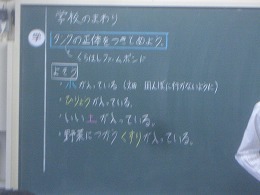 学校のまわり
学 タンクの正体をつきとめよう。
くらはしファームポンド
よそう
・水が入っている(畑 田んぼに行かないように)
・ひりょうが入っている。
・いい土が入っている。
・野菜につかうくすりが入っている。